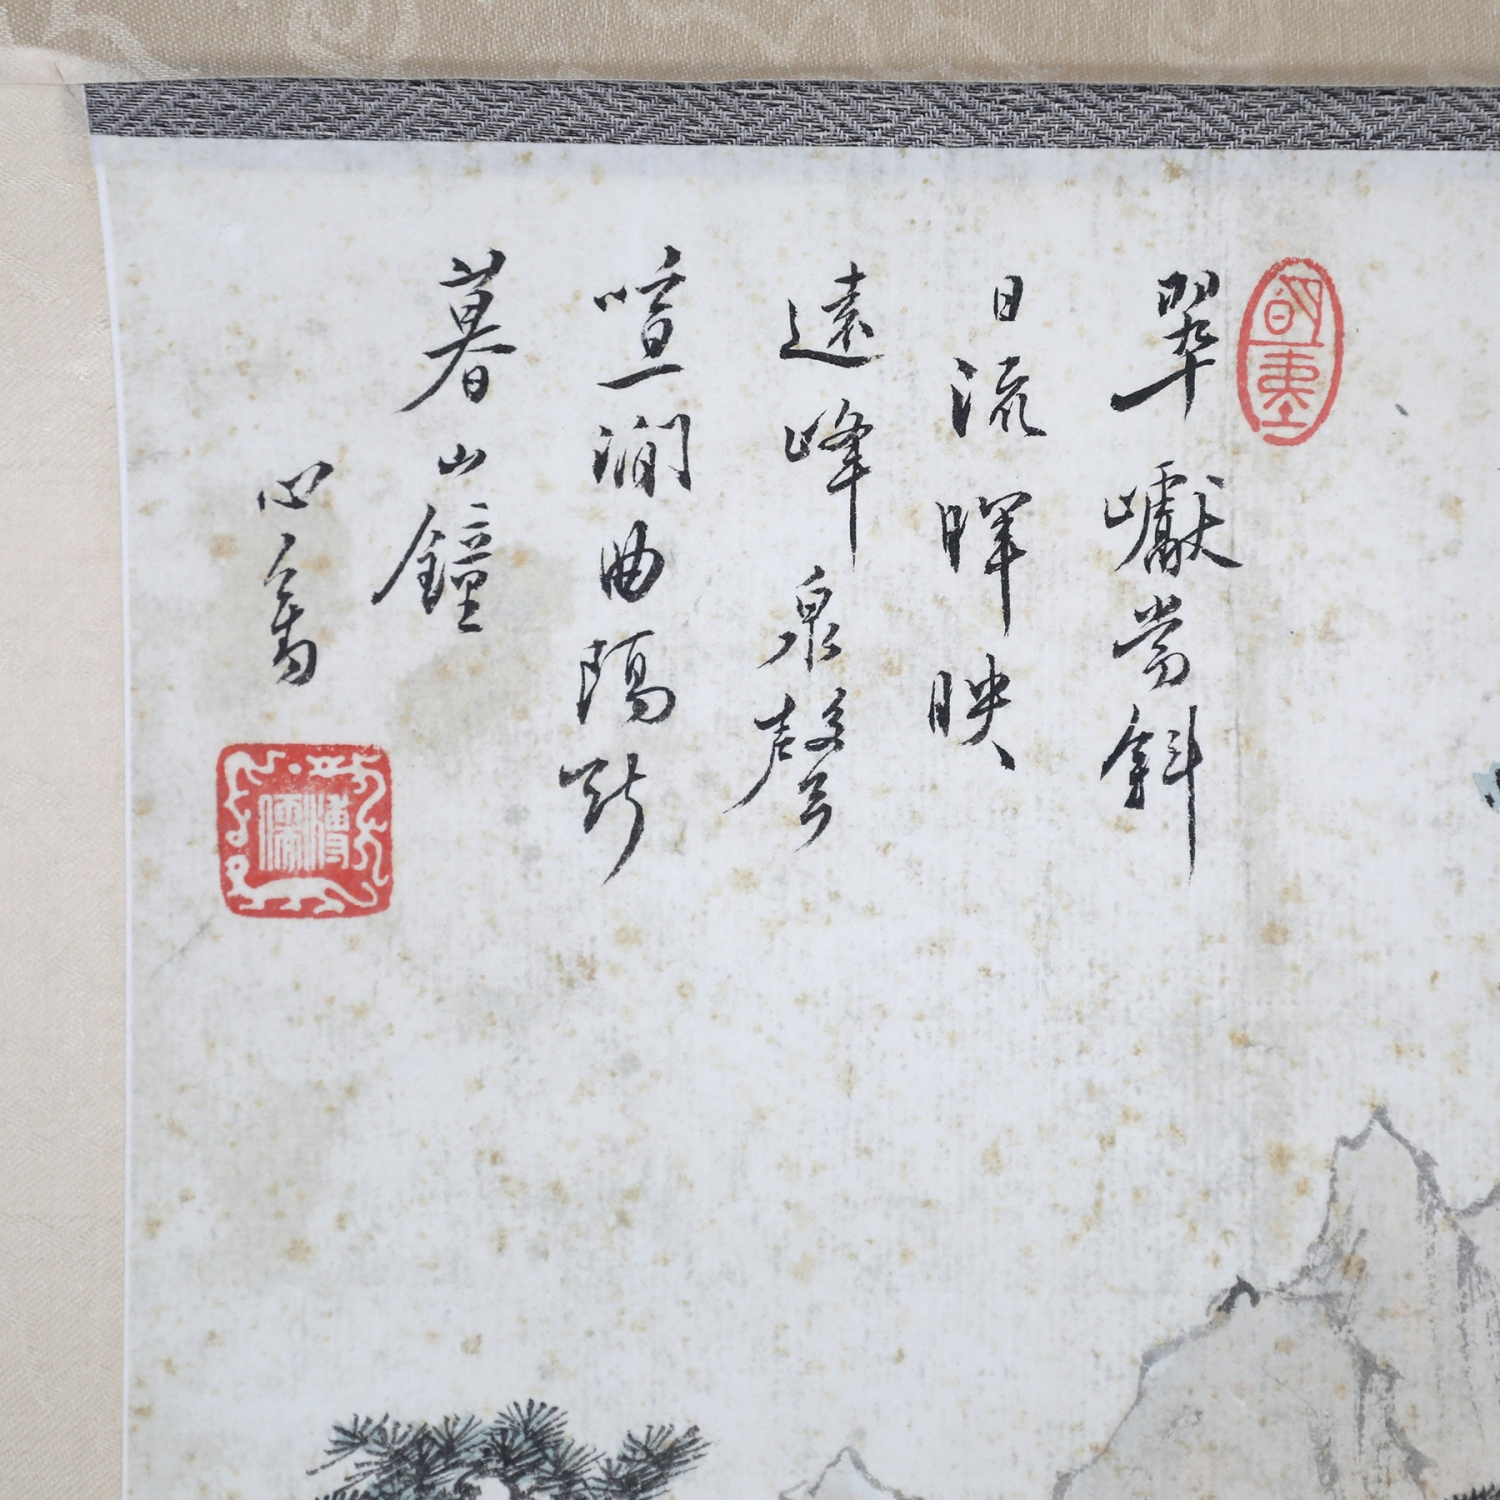 翠巘当斜
日流暉映
遠峰泉聲
喧一澗曲隔斷
暮山鐘
心畬
溥儒